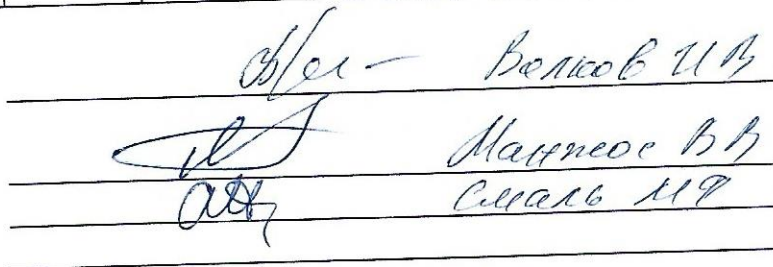 Волков И В
Манжос В В
Смаль М Ф